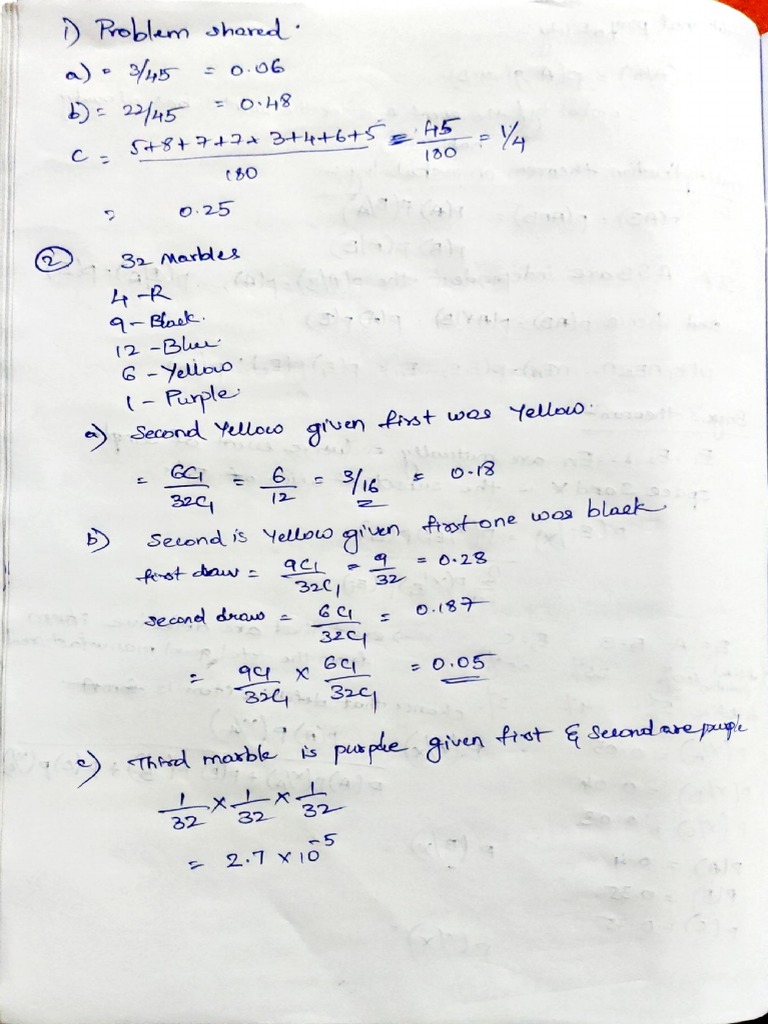 1) Problem shared.
a) = 3/45 = 0.06
b) = 22/45 = 0.48
C = 5+8+7+7+3+4+6+5 / 180 = 45/180 = 1/4
= 0.25
(2) 32 Marbles
4 - R
9 - Black.
12 - Blue.
6 - Yellow
1 - Purple.
a) Second Yellow given first was Yellow.
= 6C1/32C1 = 6/12 = 3/16 = 0.18
b) Second is Yellow given first one was black
first draw = 9C1/32C1 = 9/32 = 0.28
second draw = 6C1/32C1 = 0.187
= 9C1/32C1 × 6C1/32C1 = 0.05
c) Third marble is purple given first & Second are purple
1/32 × 1/32 × 1/32
= 2.7 × 10^-5